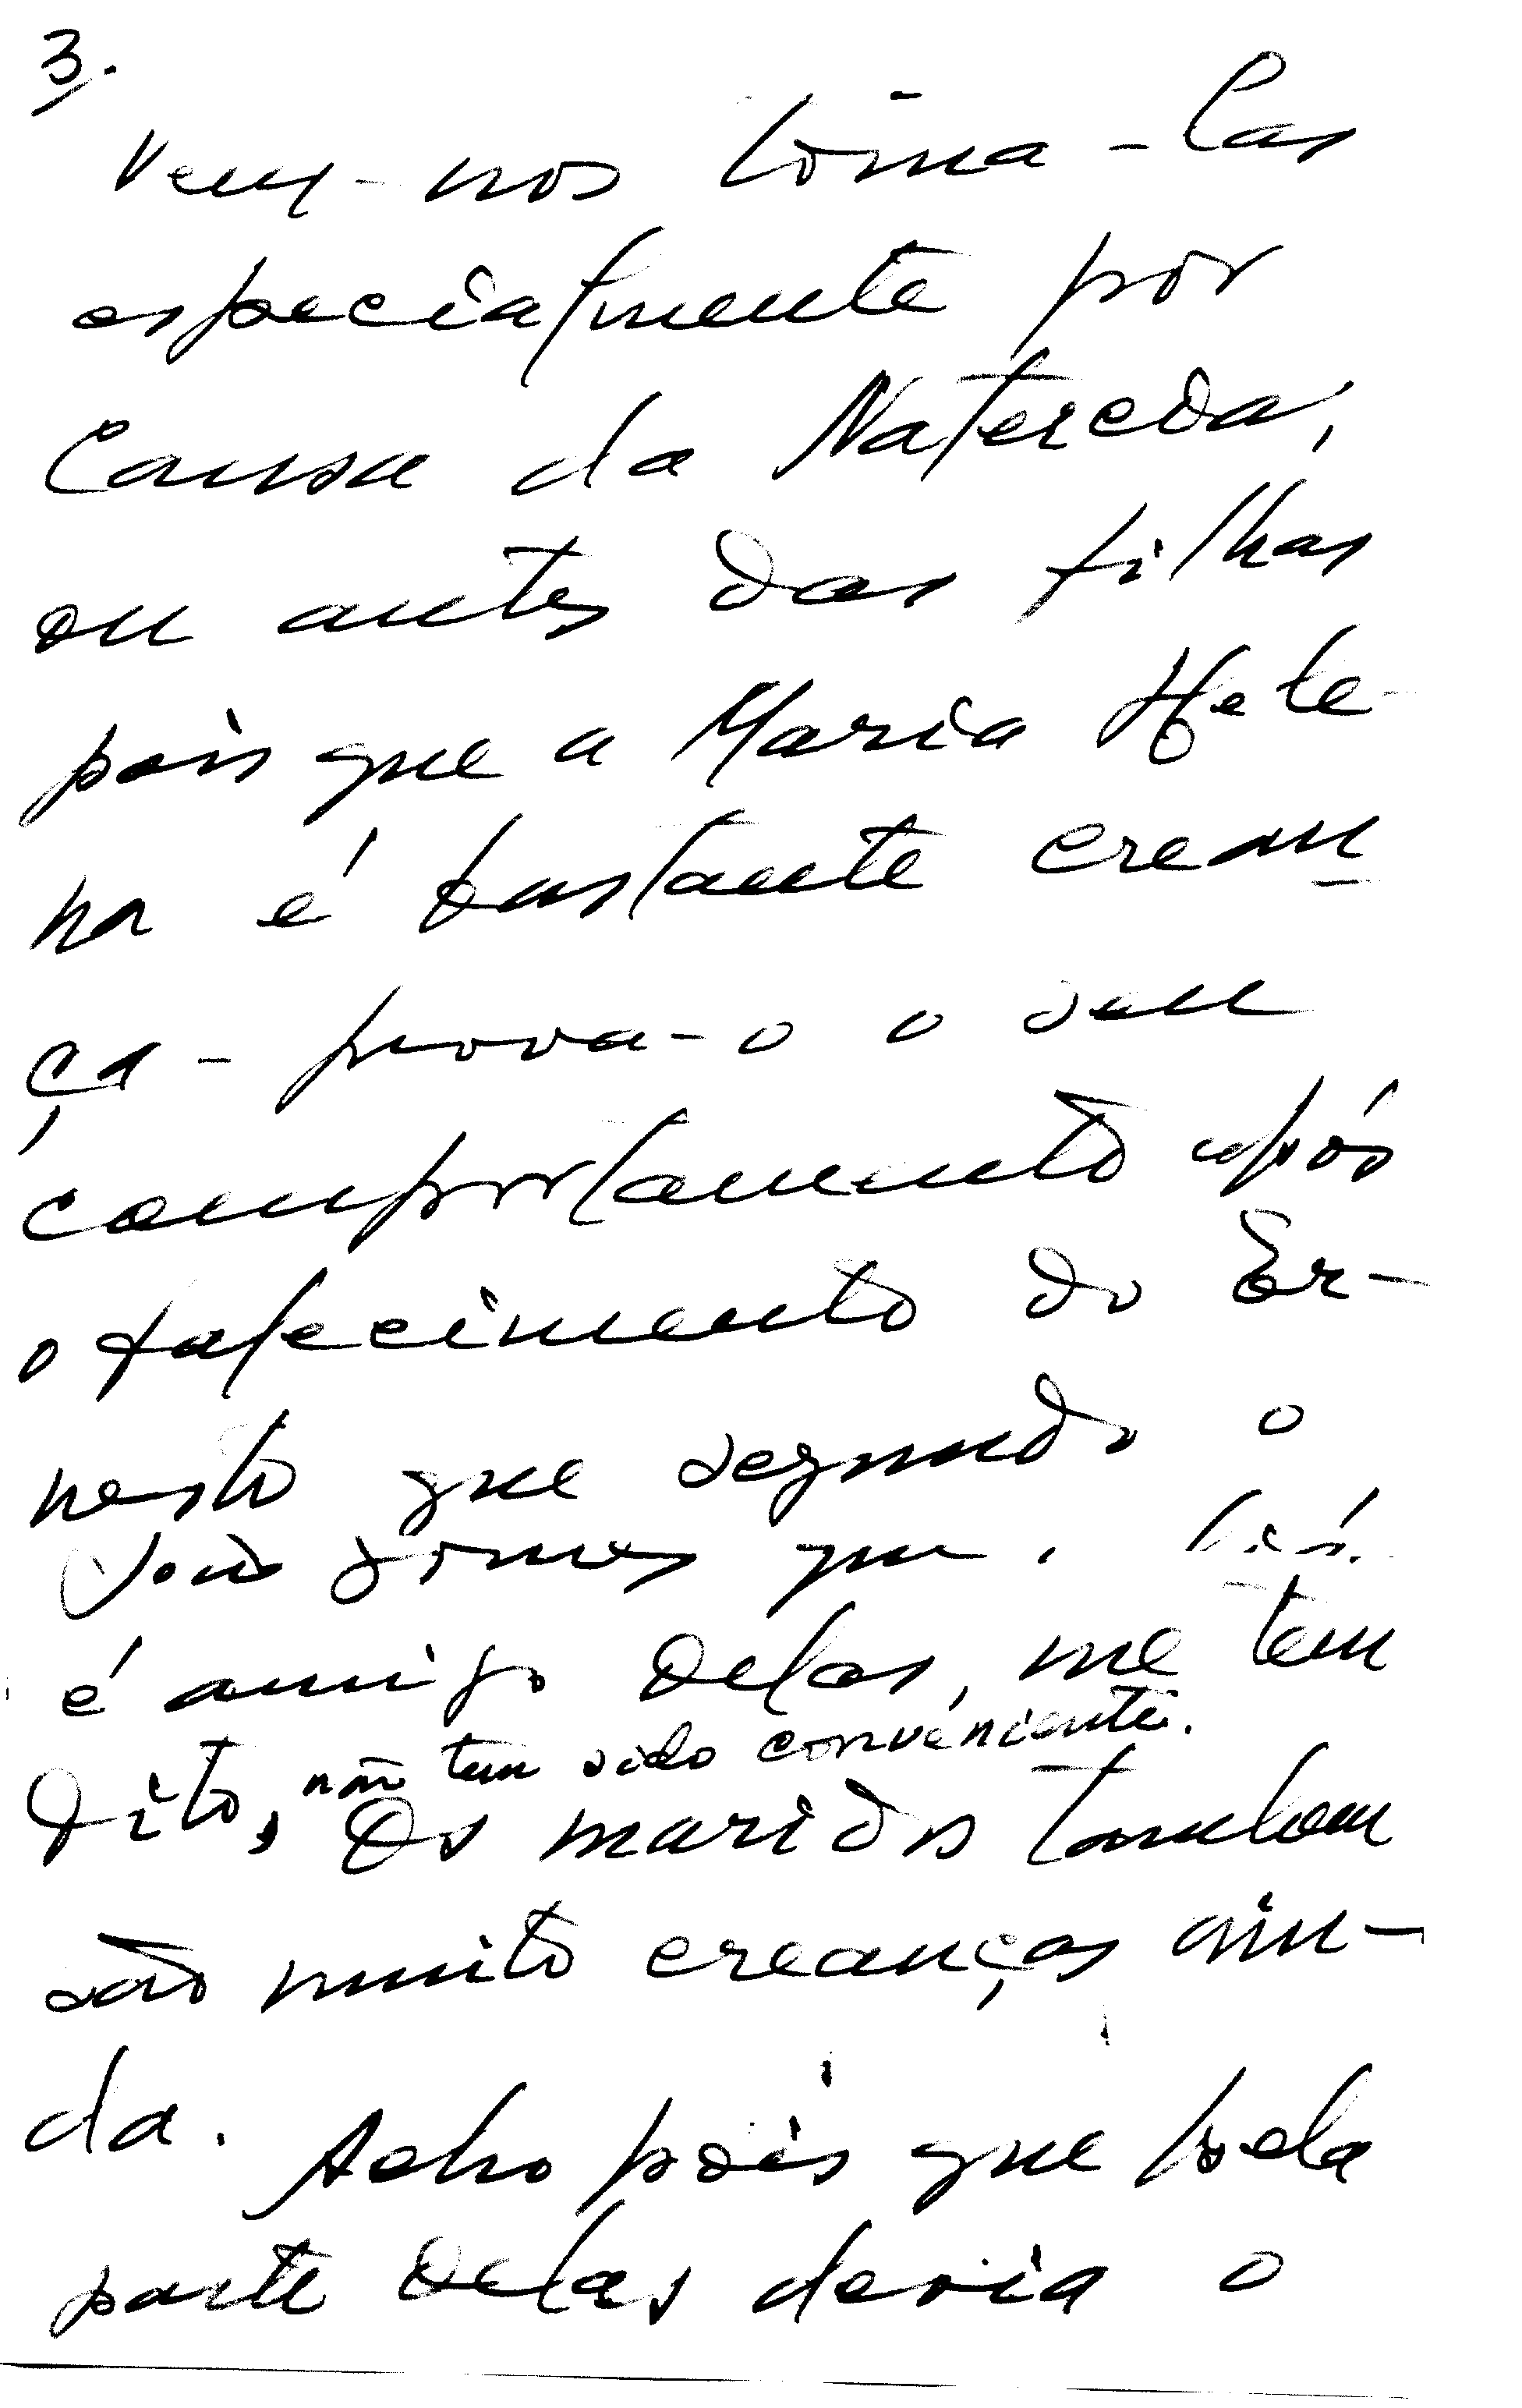 3.
Vem-nos toma-las
especialmente por
Causa da Natercia,
ou antes das filhas
pois que a Maria Hele-
na é bastante crean
ça - prova-o o seu
comportamento após
o falecimento do Er-
nesto que segundo o
João Gomes que
é amigo delas, me tem
dito, não tem sido conveniente.
Os maridos tambem
são muito creanças ain-
da. Acho pois que pela
parte delas devia o